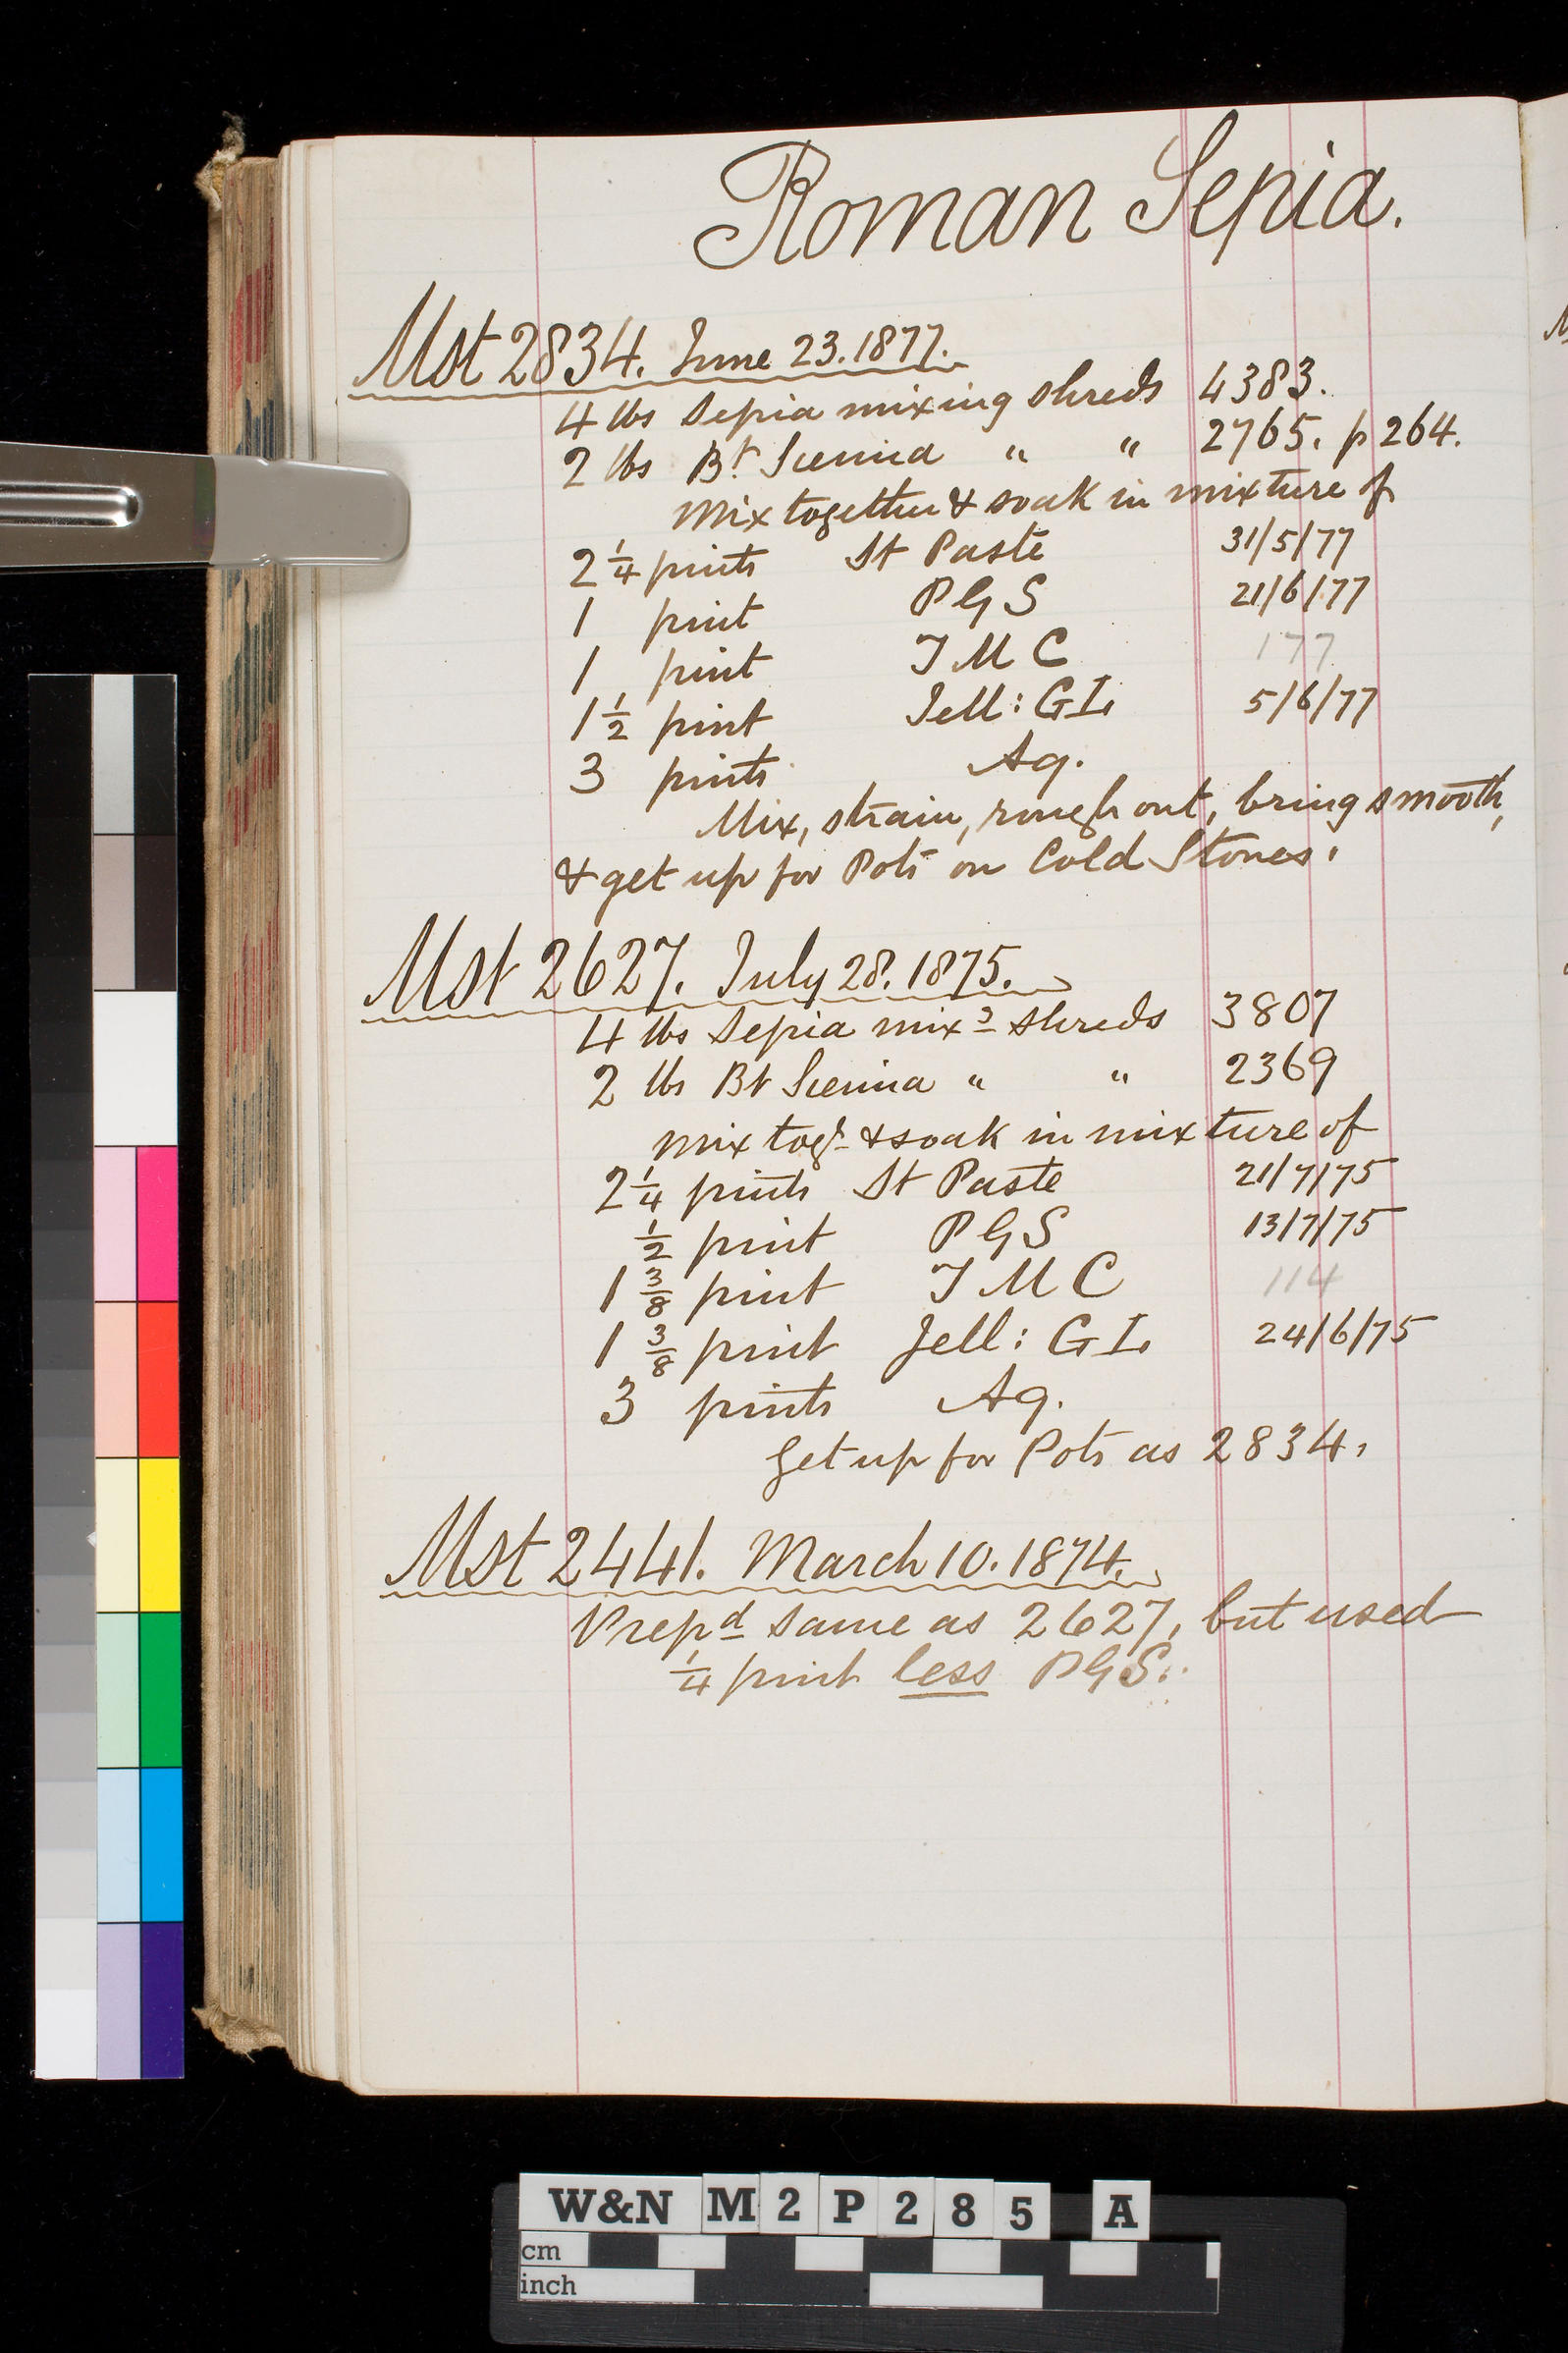 Roman Sepia.
Mst 2834. June 23. 1877.
4 lbs Sepia mixing shreds 4383.
2 lbs Bt Sienna " " 2765. p 264.
Mix together & soak in mixture of
2 1/4 pints St Paste 31/5/77
1 pint P G S 21/6/77
1 pint T M C 177
1 1/2 pint Jell: G I. 5/6/77
3 pints Aq.
Mix, strain, rough out, bring smooth,
& get up for Pots on Cold Stones.
Mst 2627. July 28. 1875.
4 lbs Sepia mixg shreds 3807
2 lbs Bt Sienna " " 2369
mix togr & soak in mixture of
2 1/4 pints St Paste 21/7/75
1/2 pint P G S 13/7/75
1 3/8 pint T M C 114
1 3/8 pint Jell: G I. 24/6/75
3 pints Aq.
Get up for Pots as 2834.
Mst 2441. March 10. 1874.
Prepd same as 2627, but used
1/4 pint less P G S.
W&N M2P285 A
cm
inch